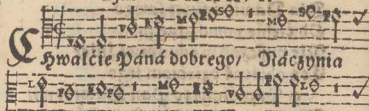 Chwalćie Páná dobrego/ Náczynia